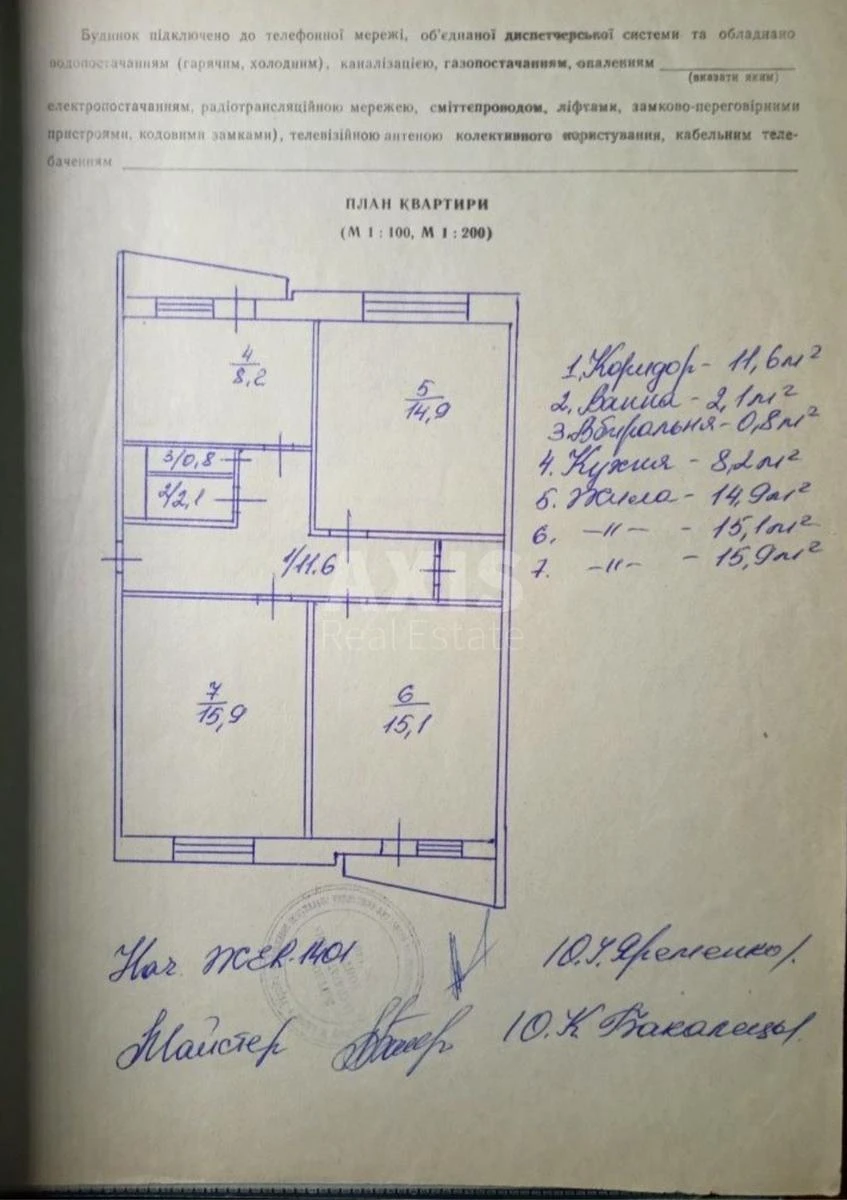 Будинок підключено до телефонної мережі, об'єднаної диспетчерської системи та обладнано
водопостачанням (гарячим, холодним), каналізацією, газопостачанням, опаленням
(вказати яким)
електропостачанням, радіотрансляційною мережею, сміттєпроводом, ліфтами, замково-переговірними
пристроями, кодовими замками), телевізійною антеною колективного користування, кабельним теле-
баченням
ПЛАН КВАРТИРИ
(М 1 : 100, М 1 : 200)
4
8,2
5
14,9
3/0,8
2/2,1
1/11.6
7
15,9
6
15,1
1. Коридор - 11,6м²
2. Ванна - 2,1м²
3. Вбиральня - 0,8м²
4. Кухня - 8,2м²
5. Жила - 14,9м²
6. -"- - 15,1м²
7. -"- - 15,9м²
AXIS
Real Estate
Нач ЖЕК-1401 Ю.І.Яременко
Майстер Ю.К